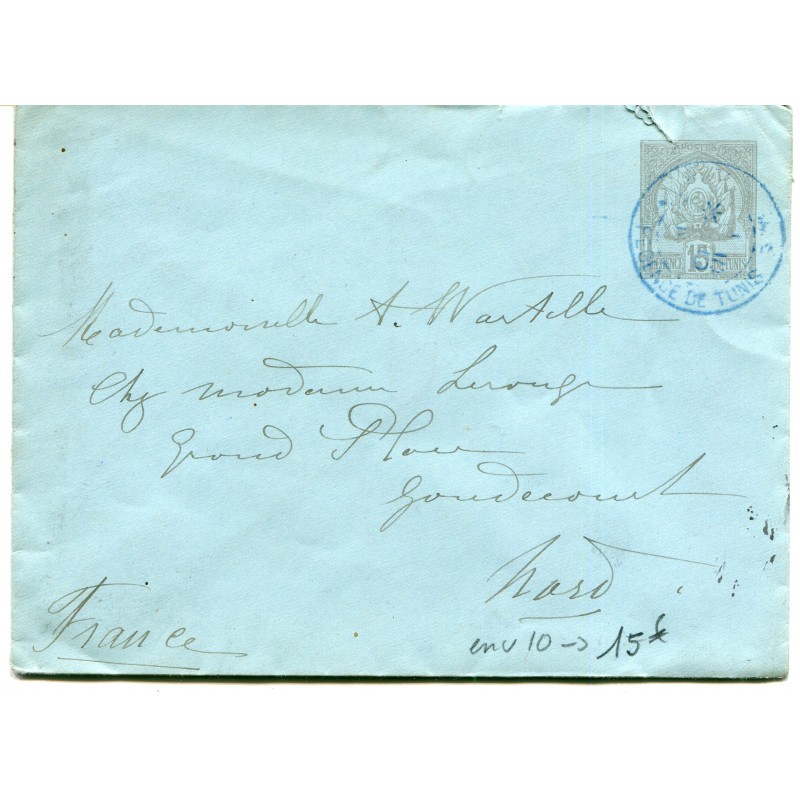 POSTES
15
RÉGENCE DE TUNIS
RÉGENCE DE TUNIS
Mademoiselle A. Wartelle
Chez madame Lerouge
Grand Place
Gondecourt
Nord
France
env 10 -> 15€